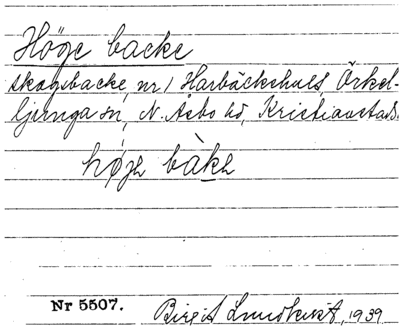 Höge backe
skogsbacke, nr 1 Harbäckshult, Örkel-
ljunga sn, N. Åsbo hd, Kristianstads.
høge bàke
Nr 5507.
Birgit Lundkvist, 1939